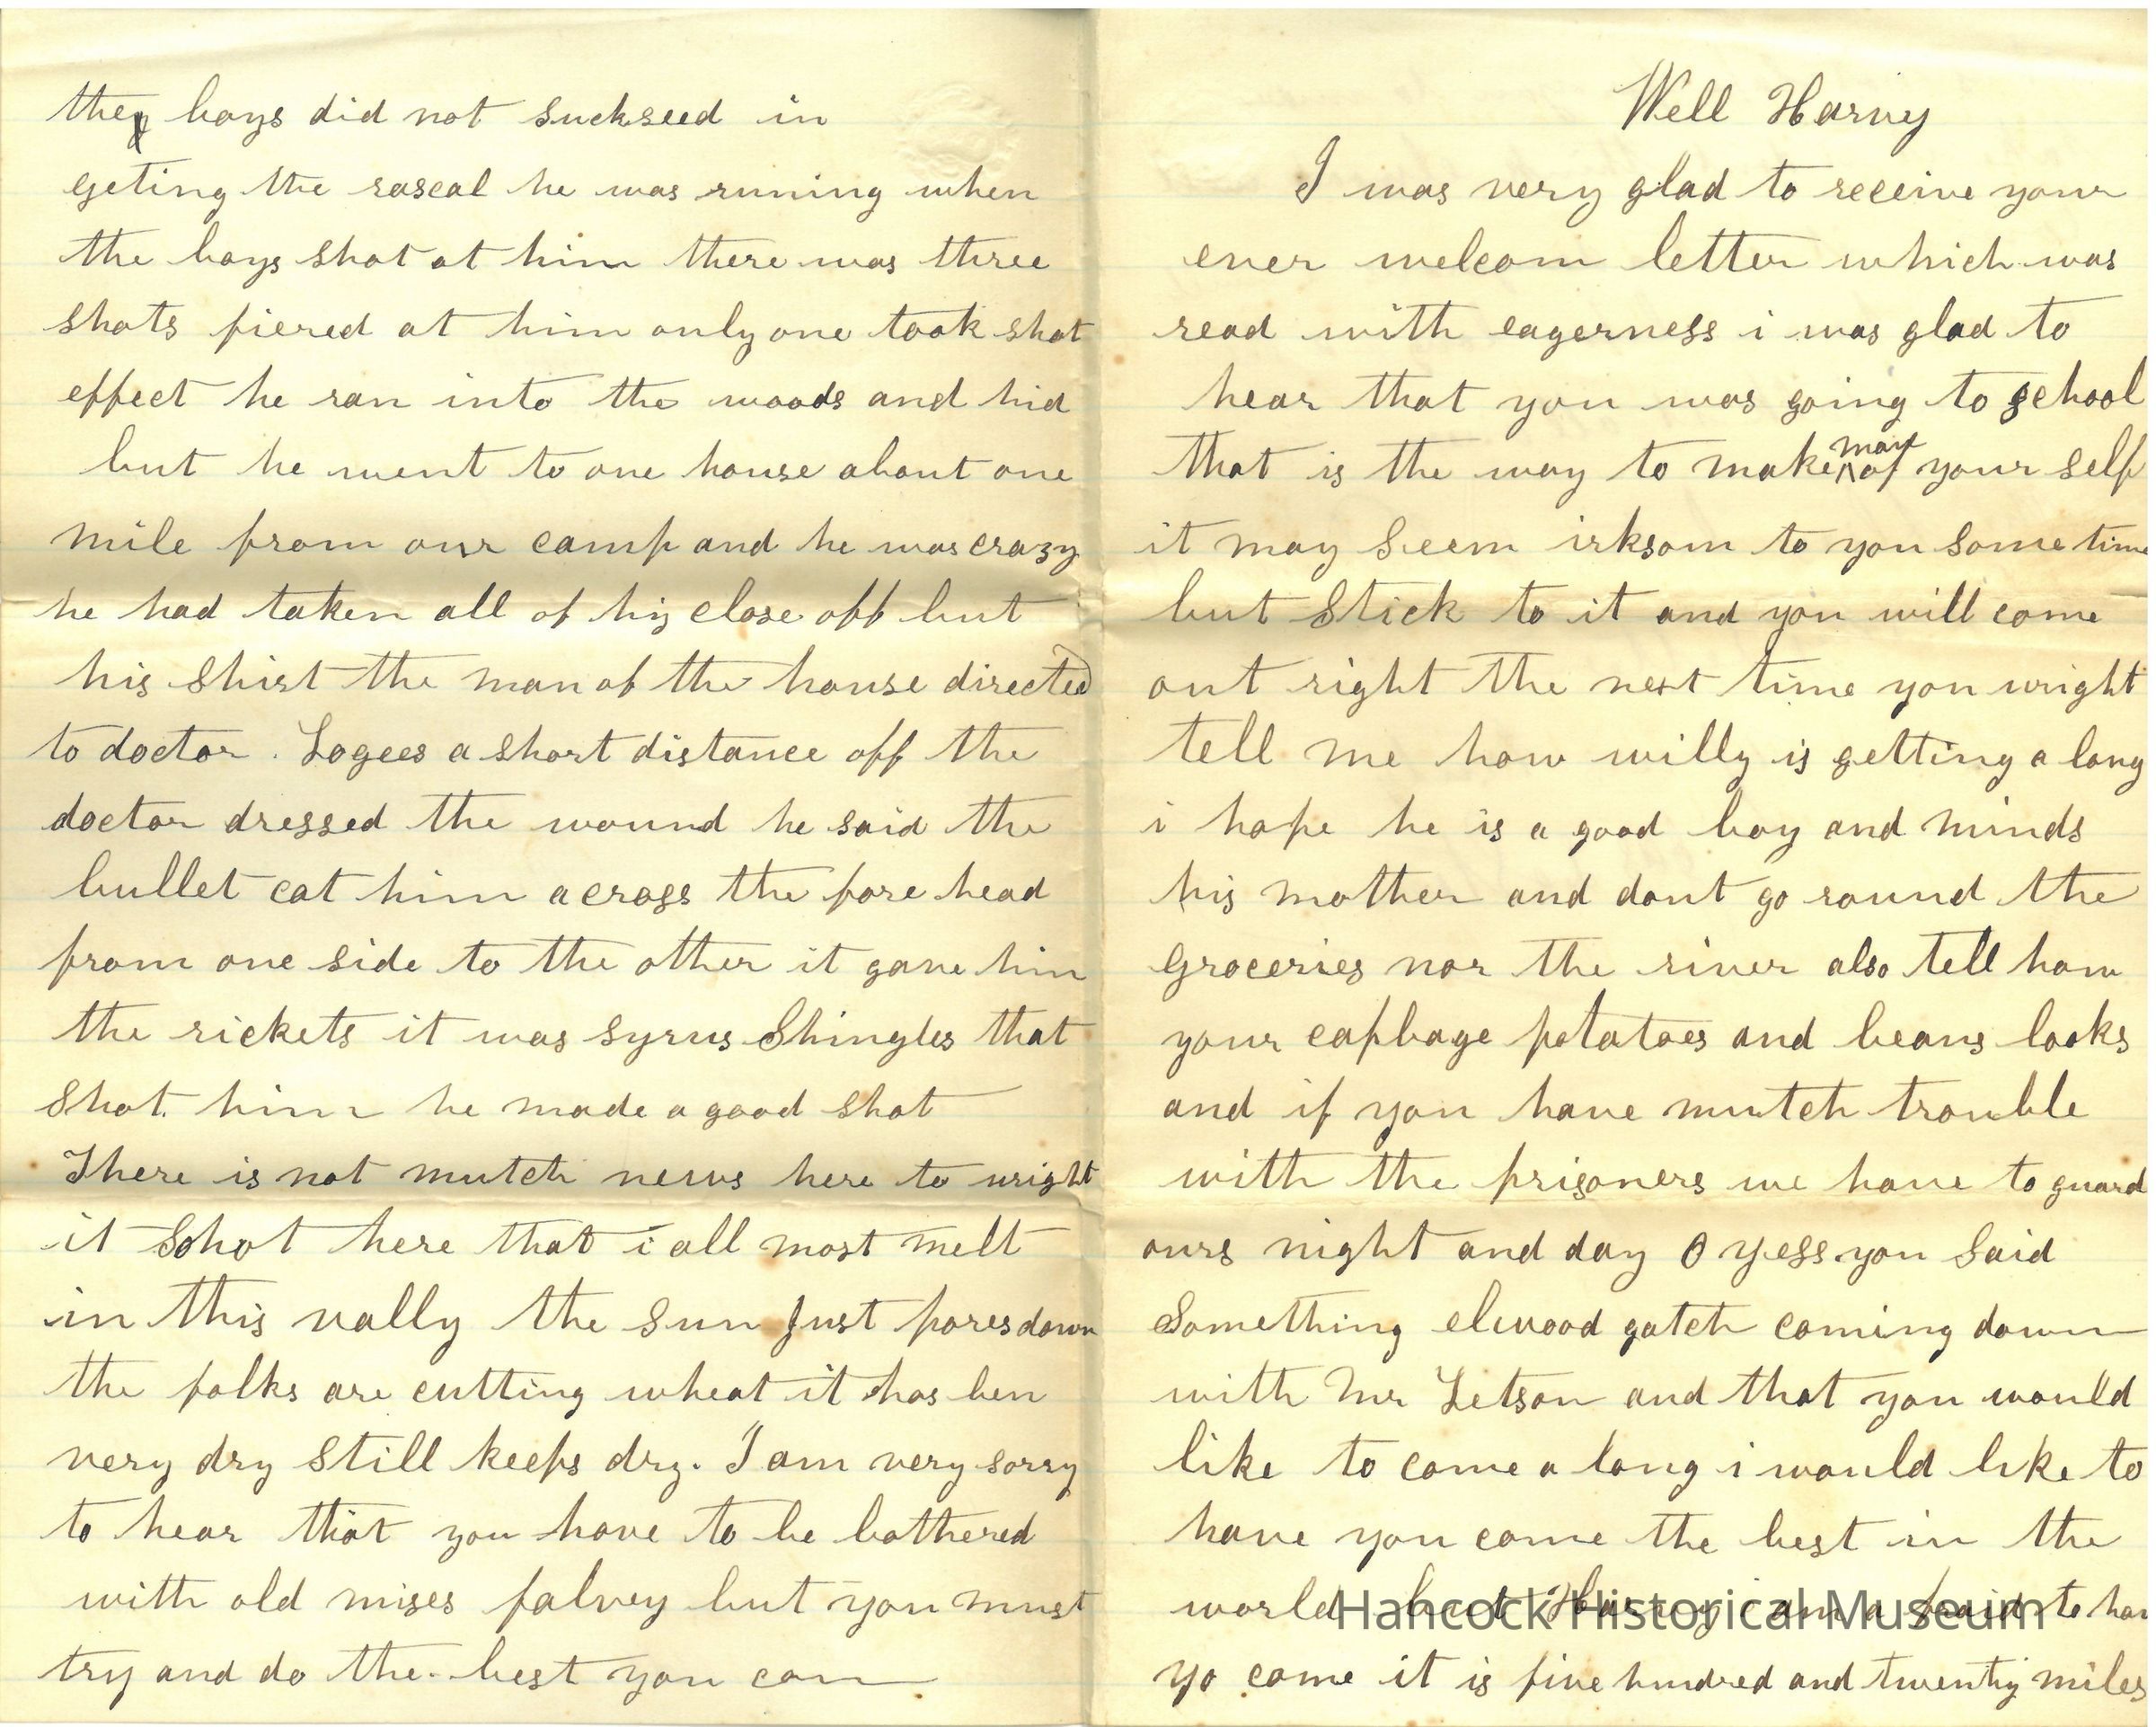 they boys did not suckseed in
geting the rascal he was runing when
the boys shot at him there was three
shots fiered at him only one took shot
effect he ran into the woods and hid
but he went to one house about one
mile from our camp and he was crazy
he had taken all of his close off but
his shirt the man of the house directed
to doctor . Logees a short distance off the
doctor dressed the wound he said the
bullet cat him across the fore head
from one side to the other it gave him
the rickets it was Syrus Shingles that
shot him he made a good shot
There is not mutch news here to wright
it so hot here that i all most melt
in this vally the sun Just pores down
the folks are cutting wheat it has ben
very dry still keeps dry. I am very sorry
to hear that you have to be bothered
with old mises falvey but you must
try and do the best you can
Well Harvy
I was very glad to receive your
ever welcom letter which was
read with eagerness i was glad to
hear that you was going to school
that is the way to make man of your self
it may seem irksom to you some time
but stick to it and you will come
out right the next time you wright
tell me how willy is getting a long
i hope he is a good boy and minds
his mother and dont go round the
groceries nor the river also tell how
your capbage potatoes and beans looks
and if you have mutch trouble
with the prisoners we have to guard
ours night and day O yess you said
something elwood gatch coming down
with Mr Letson and that you would
like to come a long i would like to
have you come the best in the
world but Harvy i am a fraid to hav
yo come it is five hundred and twenty miles
Hancock Historical Museum